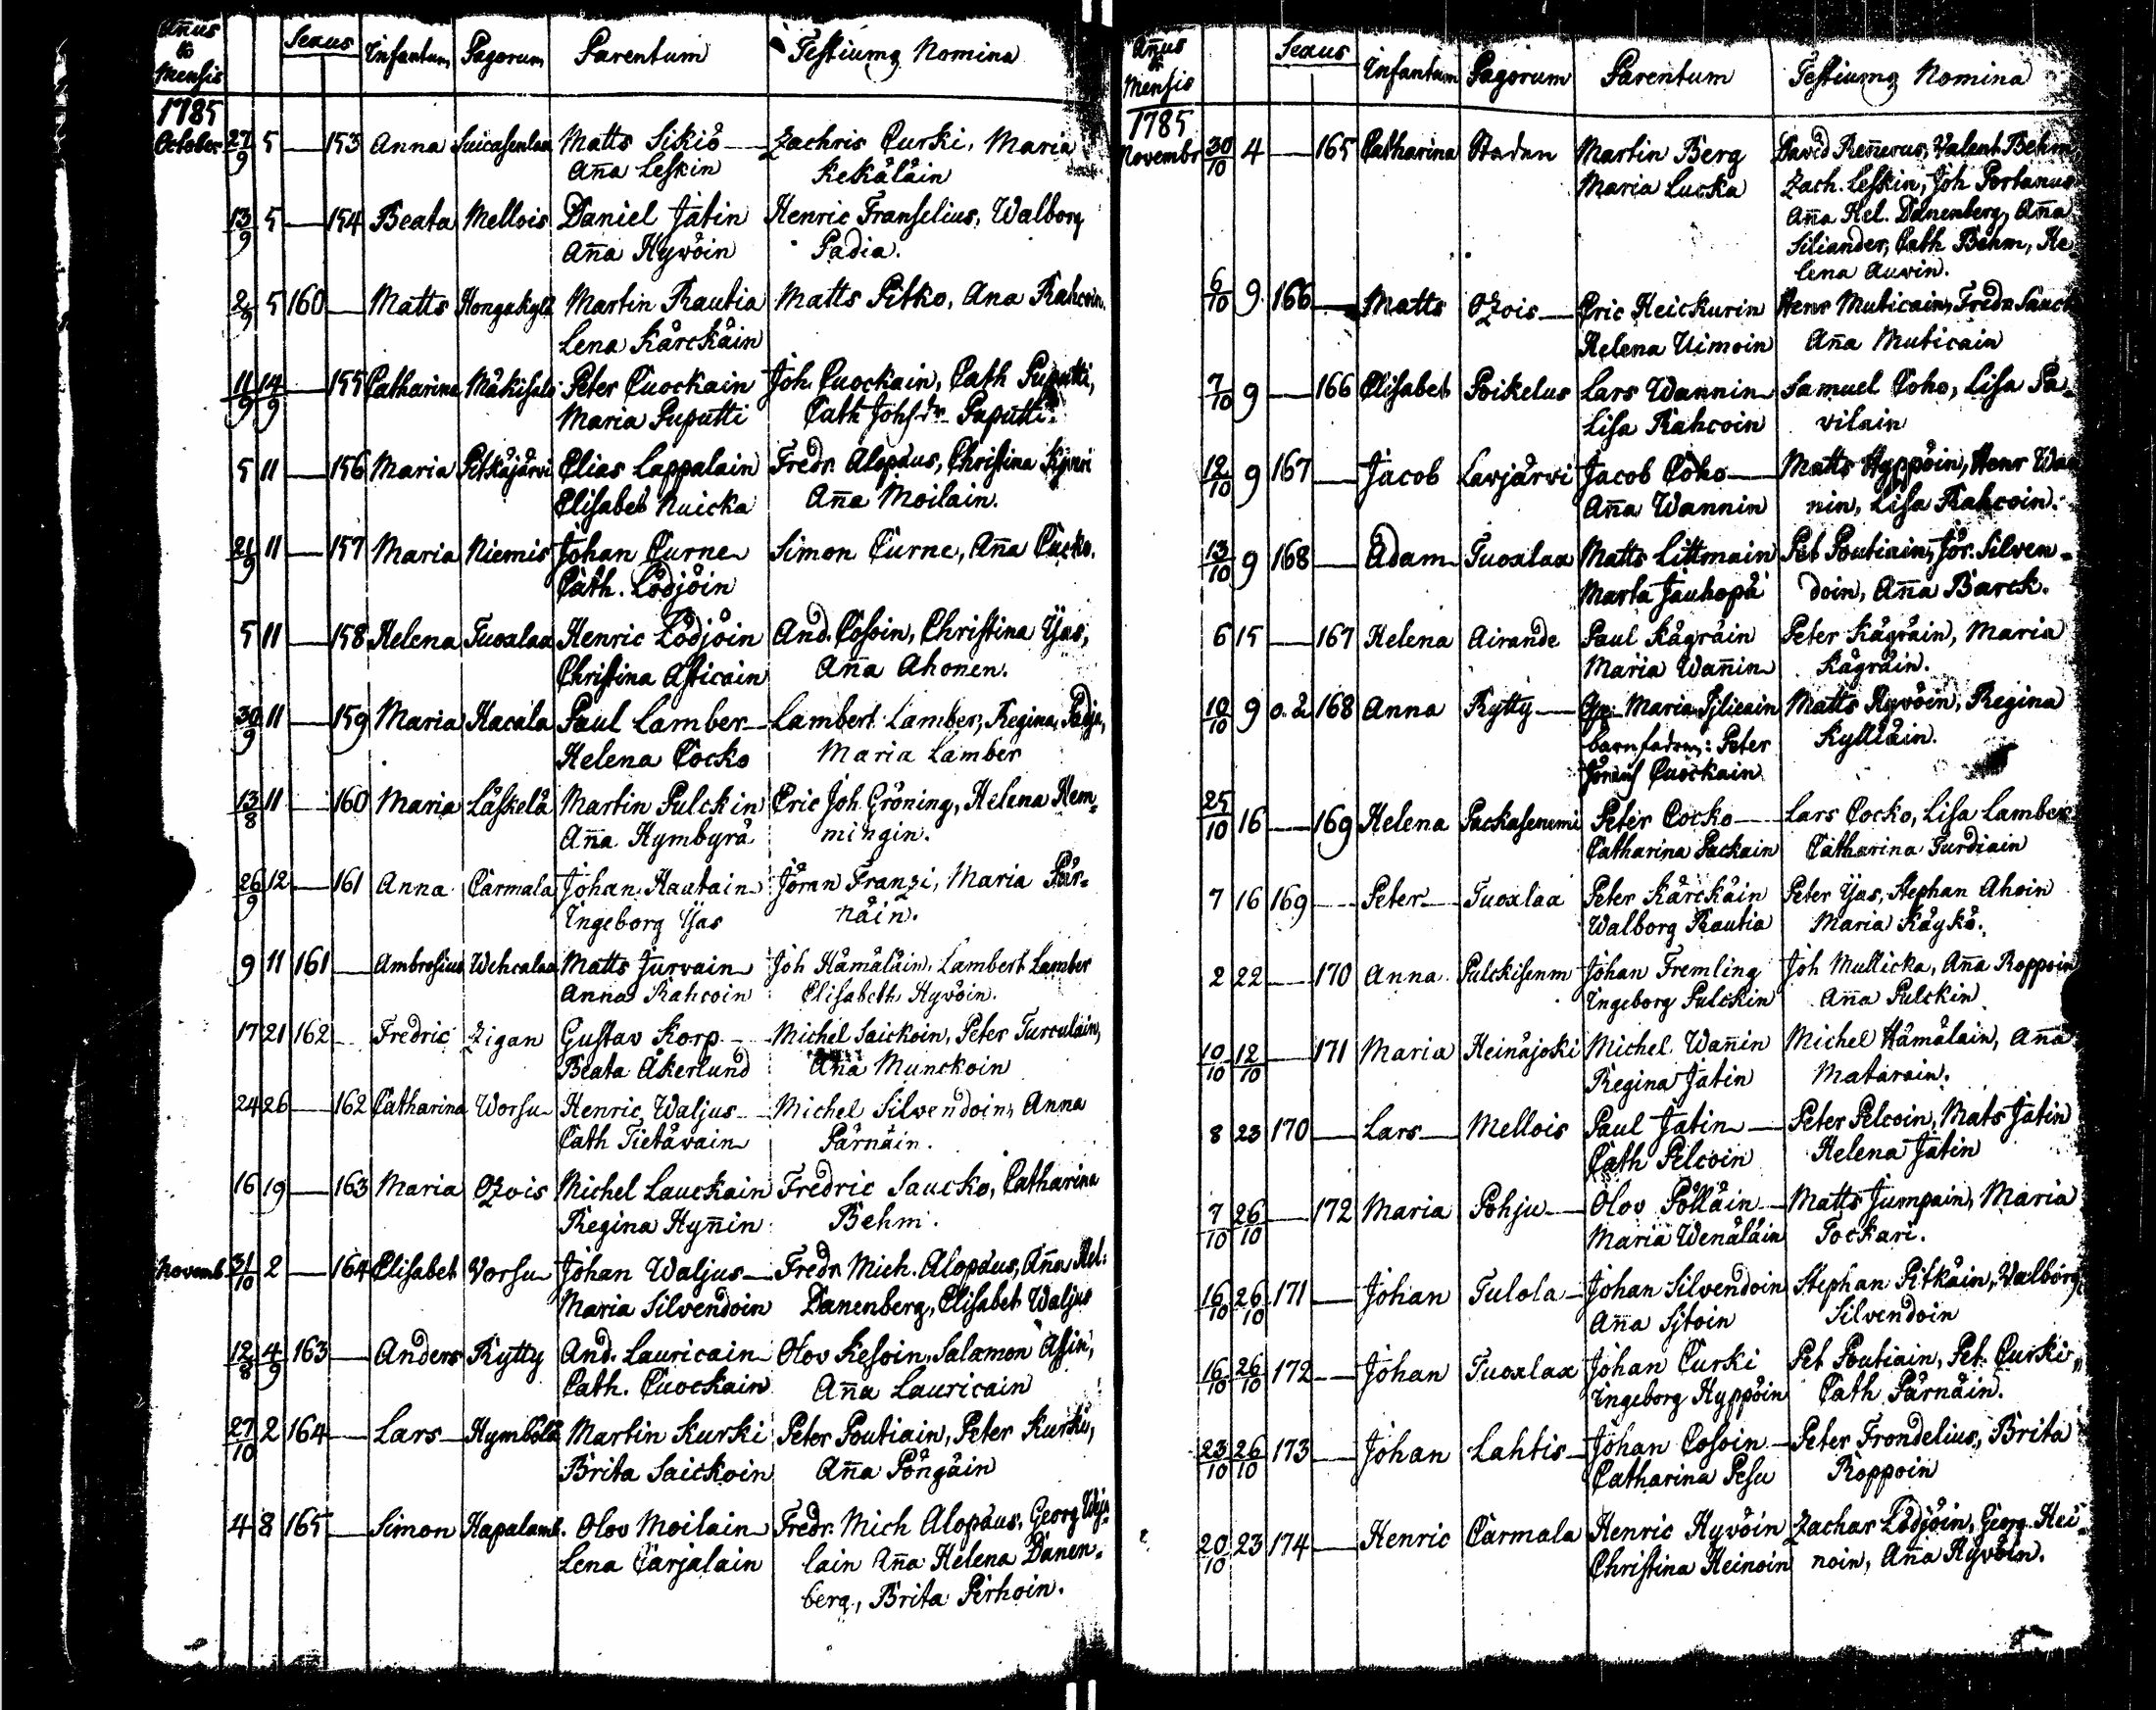 Añus & Mensis Sexus Infantum Pagorum Parentum Testiumq Nomina
1785
October 27/9 5 — 153 Anna Suicasenlax Matts Sikiö — Zachris Curki, Maria
Aña Leskin Kekäläin
13/9 5 — 154 Beata Mellois Daniel Jätin Henric Franselius, Walborg
Aña Hyvöin Padia.
2/9 5 160 — Matts Hongakylä Martin Rautia Matts Pitko, Ana Rahcoin.
Lena Kärckäin
11/9 14/9 — 155 Catharina Mäkisalo Peter Cuockain Joh. Cuockain, Cath Puputti,
Maria Puputti Cath Johsdr Puputti.
5 11 — 156 Maria Pitkäjärvi Elias Lappalain Fredr. Alopæus, Christina
Elisabet Nuicka Aña Moilain.
21/9 11 — 157 Maria Niemis Johan Curne Simon Curne, Aña Cucko.
Cath. Lödjöin
5 11 — 158 Helena Tuoxlax Henric Lödjöin And. Cosoin, Christina Yas,
Christina Asticain Aña Ahonen.
30/9 11 — 159 Maria Hacala Paul Lamber — Lambert Lamber, Regina Padja,
Helena Cocko Maria Lamber
13/8 11 — 160 Maria Läskelä Martin Pulckin Eric Joh. Gröning, Helena Hem-
Aña Hymbyrä mingin.
26/9 12 — 161 Anna Carmala Johan Hautain Jöran Franzi, Maria Pär-
Ingeborg Yas näin.
9 11 161 — Ambrosius Wehcalax Matts Jurvain Joh Hämäläin, Lambert Lamber
Anna Rahcoin Elisabeth Hyvöin.
17 21 162 — Fredric Zigan Gustav Korp — Michel Saickoin, Peter Turculain,
Beata Åkerlund Aña Munckoin
24 26 — 162 Catharina Worsu Henric Waljus — Michel Silvendoin, Anna
Cath Tietäväin Pärnäin.
16 19 — 163 Maria Ozois Michel Lauckain Fredric Saucko, Catharina
Regina Hyñin Behm.
Novemb. 31/10 2 — 164 Elisabet Vorsu Johan Waljus — Fredr. Mich. Alopæus, Aña Hel:
Maria Silvendoin Danenberg, Elisabet Waljus
12/8 4/9 163 — Anders Rytty And. Lauricain Olov Kesoin, Salamon Asin,
Cath. Cuockain Aña Lauricain
27/10 2 164 — Lars Hymbölä Martin Kurki Peter Poutiain, Peter Kurki,
Brita Saickoin Aña Pöngäin
4 8 165 — Simon Hapalamb. Olov Moilain Fredr. Mich Alopæus, Georg
Lena Carjalain lain Aña Helena Danen-
berg, Brita Pirhoin.
Añus & Mensis Sexus Infantum Pagorum Parentum Testiumq Nomina
1785
Novembr 30/10 4 — 165 Catharina Staden Martin Berg David Reñerus, Valent Behm,
Maria Lucka Zach. Leskin, Joh Portanus
Aña Hel. Danenberg, Aña
Siliander, Cath Behm, He-
lena Auvin.
6/10 9 166 — Matts Ozois — Eric Heickurin Henr Muticain, Fredr Sauck
Helena Uimoin Aña Muticain
7/10 9 — 166 Elisabet Poikelus Lars Wannin Samuel Coho, Lisa Pa-
Lisa Rahcoin vilain
12/10 9 167 — Jacob Lavjärvi Jacob Coho — Matts Hyppöin, Henr Wan
Aña Wannin nin, Lisa Rahcoin.
13/10 9 168 — Adam Tuoxlax Matts Littmain Pet Poutiain, Jör. Silven-
Marta Jauhopä doin, Aña Barck.
6 15 — 167 Helena Airande Paul Kägräin Peter Kägräin, Maria
Maria Wañin Kägräin.
10/10 9 o.ä 168 Anna Rytty — Maria Matts Hyvöin, Regina
barnfadren: Peter Kylliäin.
Cuockain
25/10 16 — 169 Helena Packasenemi Peter Cocko — Lars Cocko, Lisa Lamber
Catharina Packain Catharina Turdiain
7 16 169 — Peter — Tuoxlax Peter Kärckäin Peter Yas, Stephan Ahoin
Walborg Rautia Maria Käykö.
2 22 — 170 Anna Pulckisenm Johan Fremling Joh Mullicka, Aña Roppoin
Ingeborg Pulckin Aña Pulckin
10/10 12/10 — 171 Maria Heinäjoki Michel Wañin Michel Hämälain, Aña
Regina Jatin Matarain.
8 23 170 — Lars — Mellois Paul Jatin — Peter Pelcoin, Mats Jatin
Cath Pelcoin Helena Jätin
7/10 26/10 — 172 Maria Pohju — Olov Pölläin — Matts Jumpain, Maria
Maria Wenäläin Tockari.
16/10 26/10 171 — Johan Tulola — Johan Silvendoin Stephan Pitkäin, Walborg
Aña Sjtoin Silvendoin
16/10 26/10 172 — Johan Tuoxlax Johan Curki Pet Poutiain, Pet. Curki,
Ingeborg Hyppöin Cath Pärnäin.
23/10 26/10 173 — Johan Lahtis — Johan Cosoin — Peter Frondelius, Brita
Catharina Pesu Roppoin
20/10 23 174 — Henric Carmala Henric Hyvöin Zachar Lödjöin, Georg Hei-
Christina Heinoin noin, Aña Hyvöin.